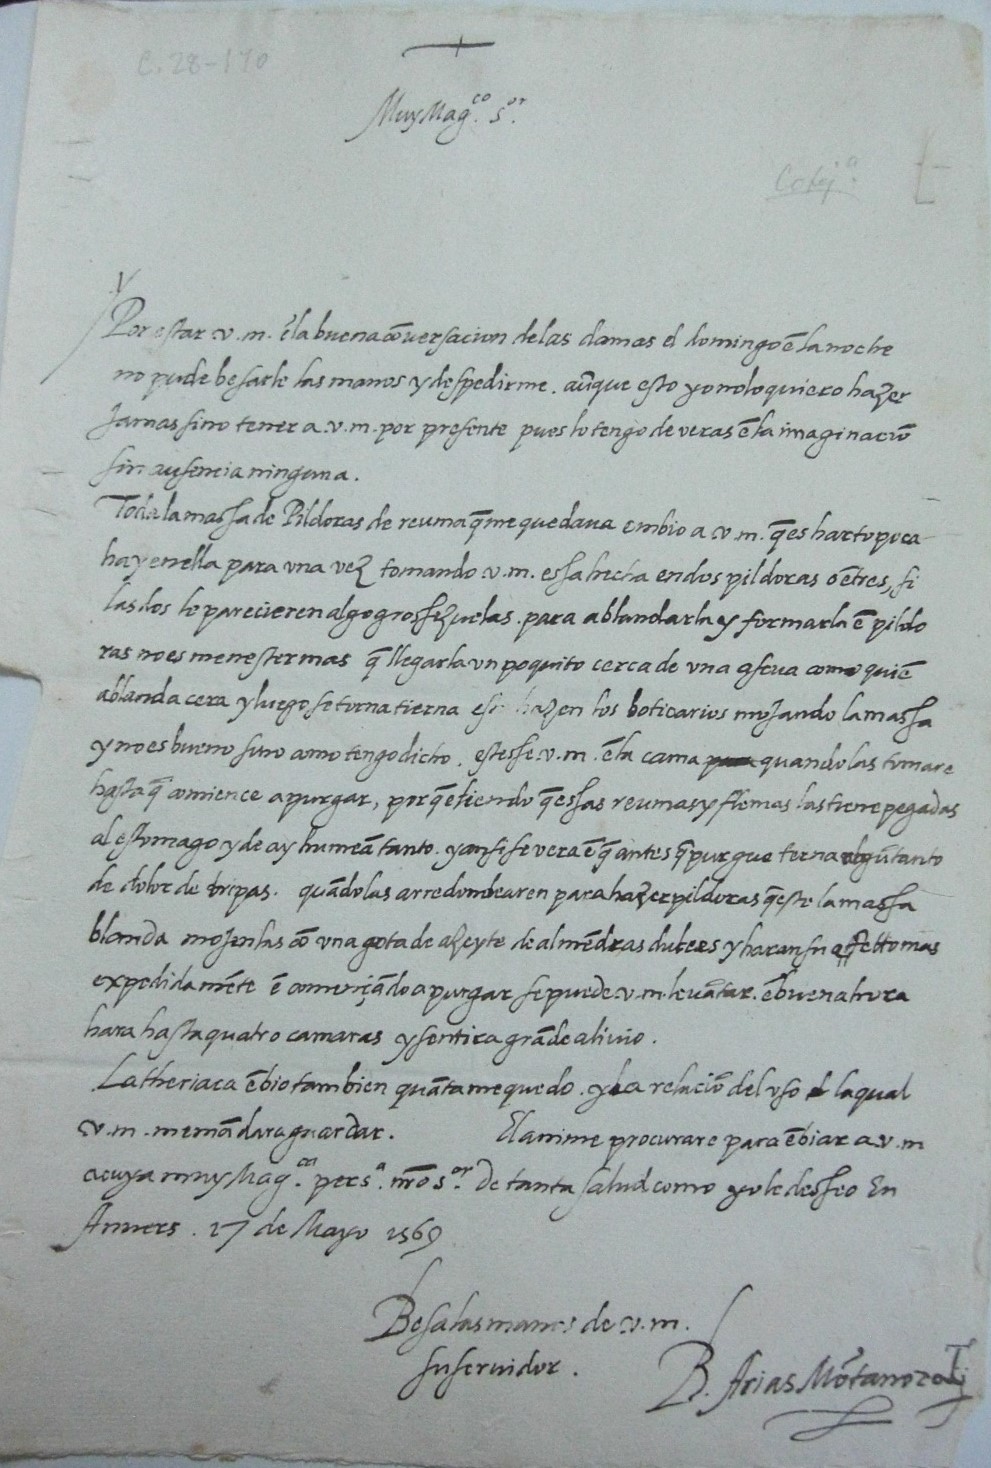 C. 28-170
Muy Mag.co s.or
Por estar .v.m. ẽ la buena cõuersacion de las damas el domingo ẽ la noche
no pude besarle las manos y despedirme. aũque esto yo no lo quiero hazer
Jamas sino tener a .v.m. por presente pues lo tengo de veras ẽ la imaginaciõ
sin ausencia ninguna.
Toda la massa de Pildoras de reuma q̃ me quedaua embio a v.m. q̃ es harto poca
hay en ella para vna vez tomando .v.m. essa hecha en dos pildoras o ẽ tres, si
las dos le parecieren algo grossezuelas. para ablandarla y formarla ẽ pildo
ras no es menester mas q̃ llegarla vn poquito cerca de vna ascua como quiẽ
ablanda cera y luego se torna tierna hazen los boticarios mojando la massa
y no es bueno sino como tengo dicho. estesse .v.m. ẽ la cama quando las tomare
hasta q̃ comience a purgar, porq̃ ẽtiendo q̃ essas reumas y flemas las tiene pegadas
al estomago y de ay humeã tanto. y ansi se vera ẽ q̃ antes q̃ purgue terna algũ tanto
de dolor de tripas. quãdo las arredondearen para hazer pildoras q̃ este la massa
blanda mojenlas cõ vna gota de azeyte de almẽdras dulces y haran su effetto mas
expedidamẽte ẽ comẽçãdo a purgar se puede .v.m. leuãtar. ẽ buena hora
hara hasta quatro camaras y sentira grãde aliuio.
La theriaca ẽbio tambien quãta me quedo. y la relaciõ del vso la qual
v.m. me mãdara guardar. El anime procurare para ẽbiar a .v.m
a cuya muy Mag.ca pers.a nr̃o s.or De tanta salud como yo le desseo En
Anvers. 17 de Mayo 1569
Besa las manos de .v.m.
su seruidor.
B. Arias Mõtano